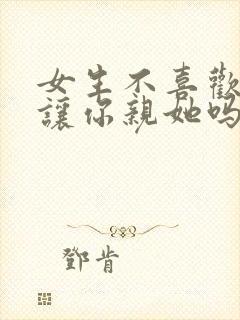 女生不喜歡
讓你親她吗
鄧肯